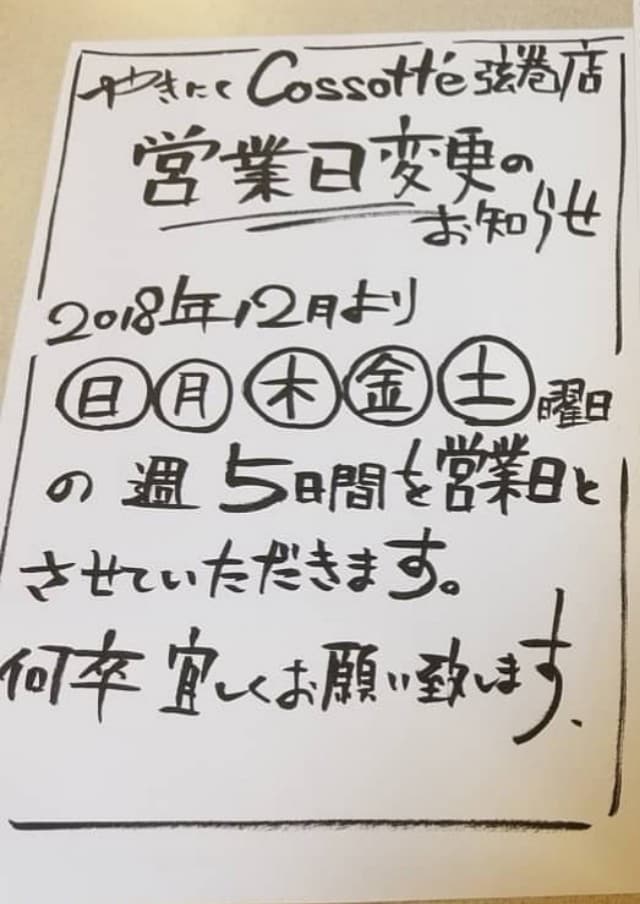 やきにく Cossott'e 弦巻店
営業日変更の
お知らせ
2018年12月より
日月木金土曜日
の週5日間を営業日と
させていただきます。
何卒宜しくお願い致します、